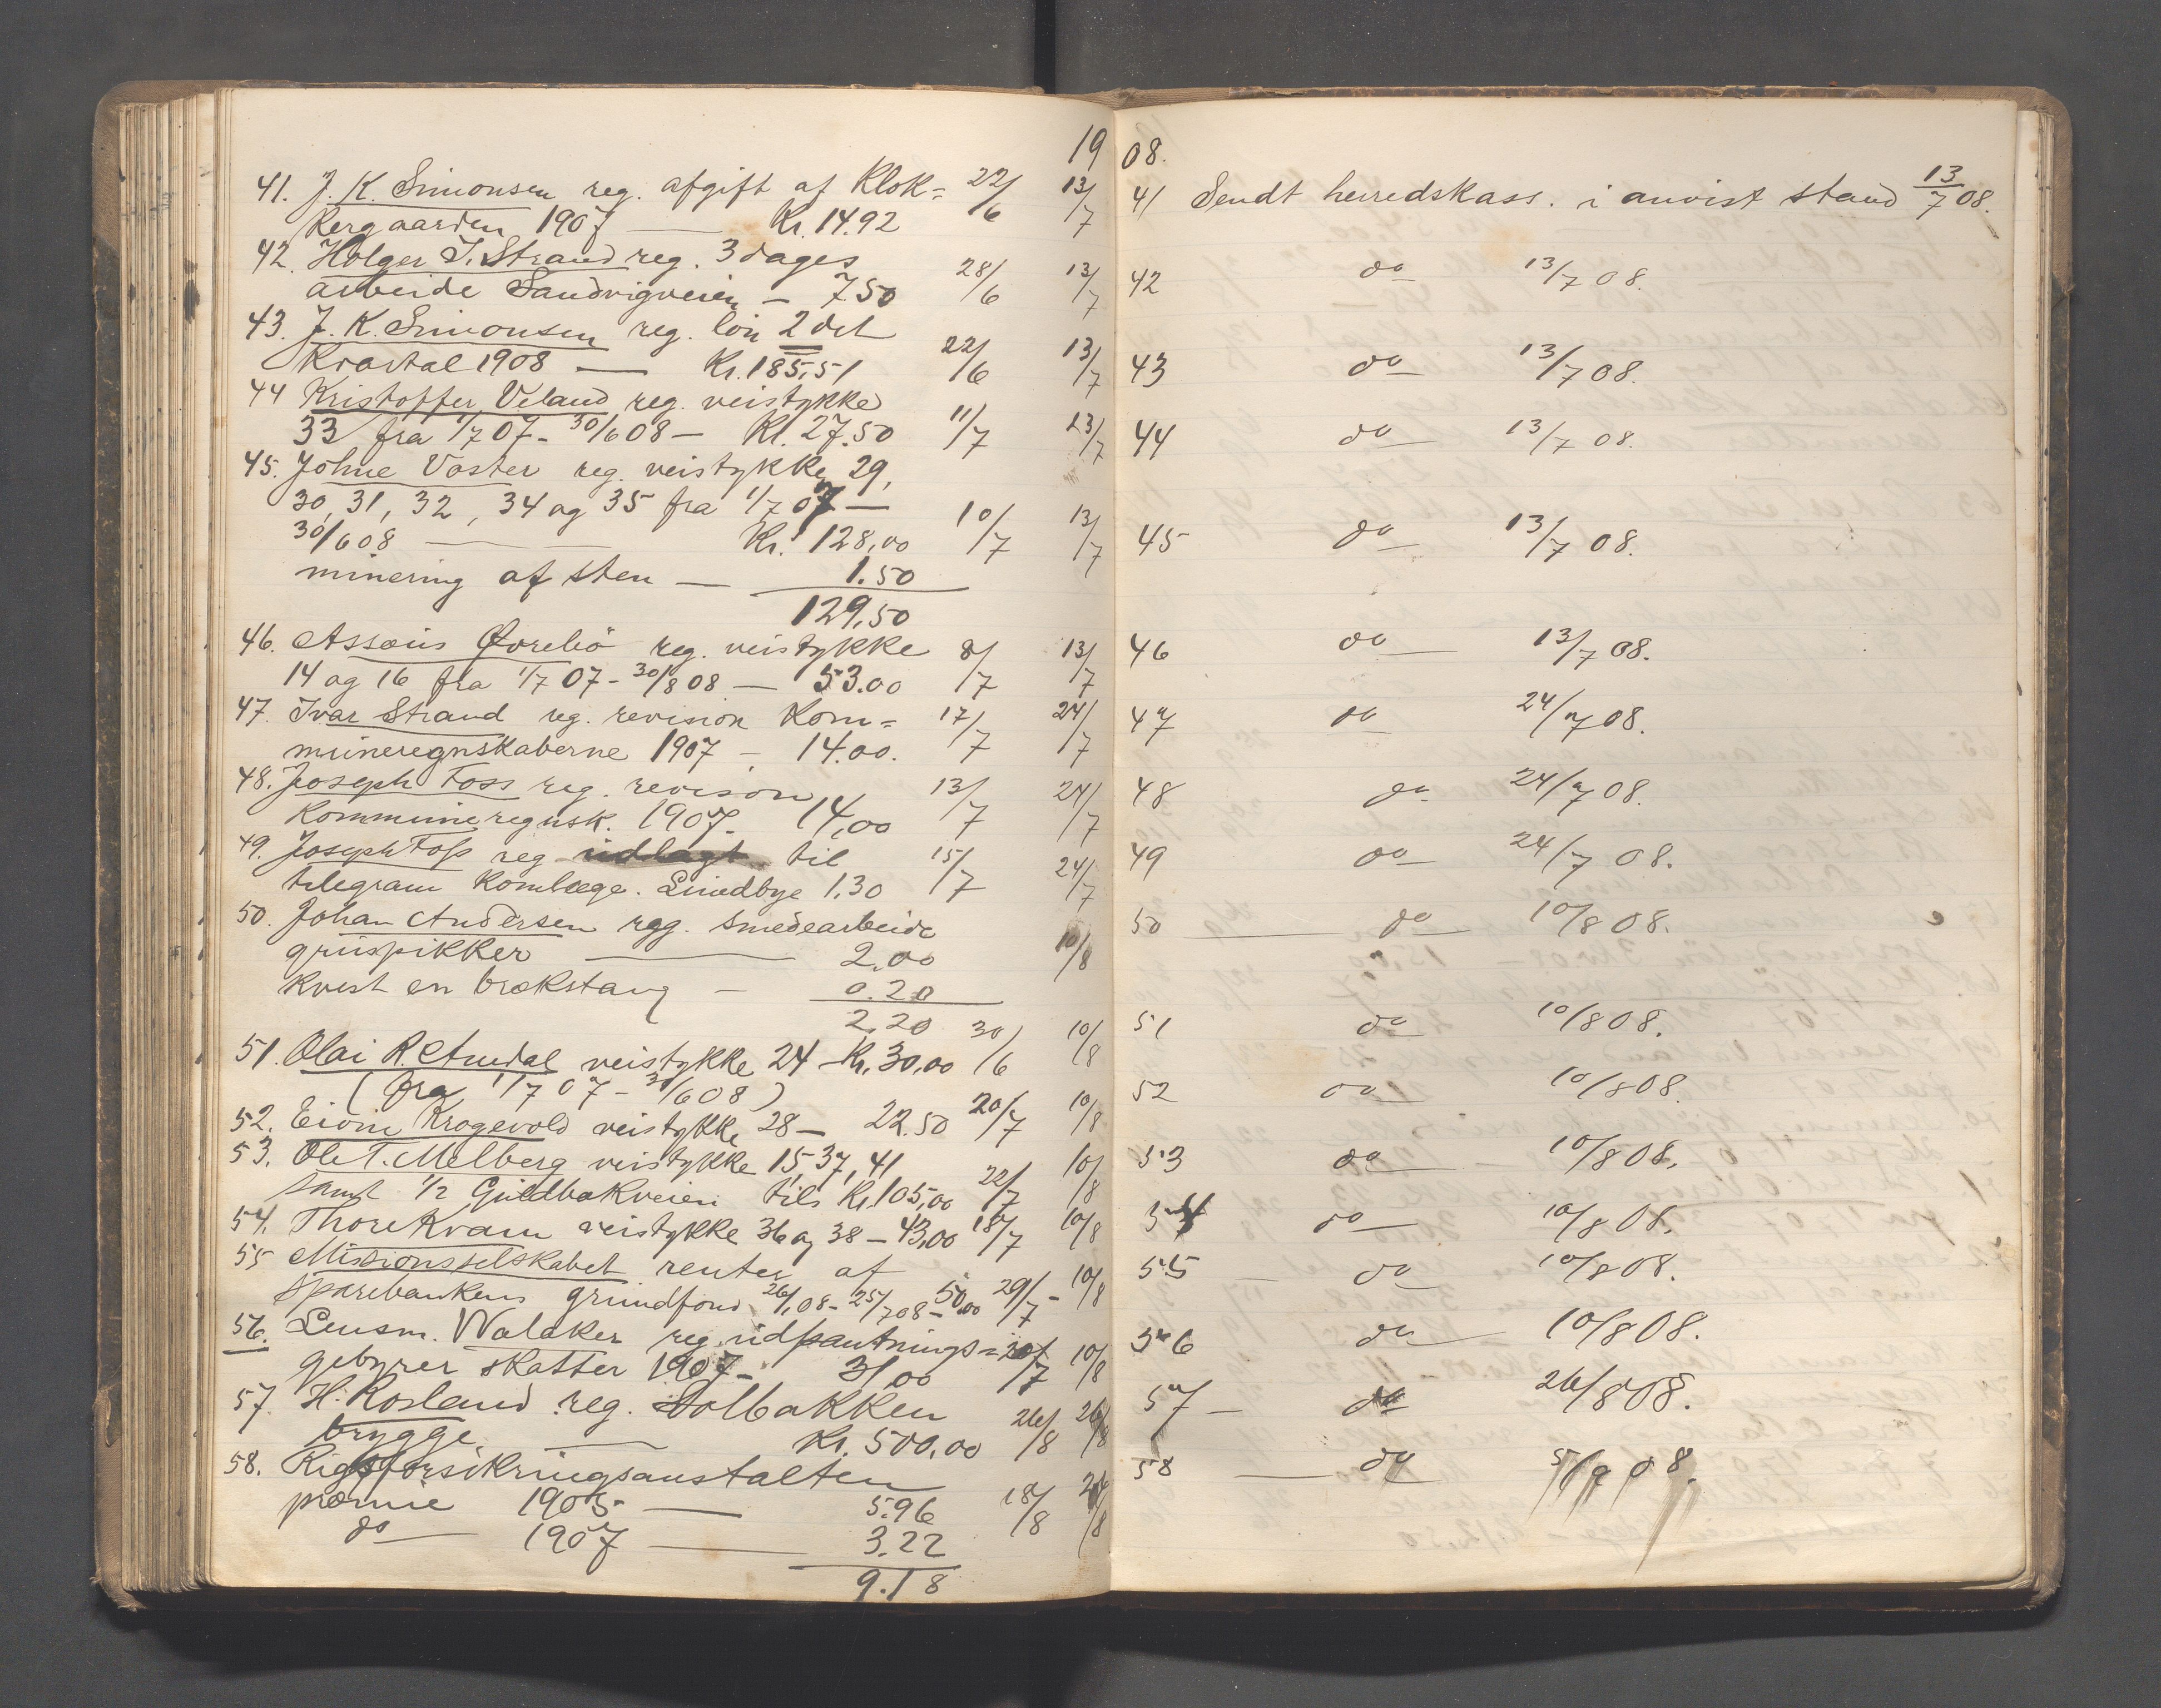 19
41. J. K. Simonsen reg. afgift af Klok= 22/6 13/7
kergaarden 1907 — Kr. 14.92
42. Holger T. Strand reg. 3 dages
arbeide Sandvigveien — 7 50 28/6 13/7
43. J. K. Simonsen reg. løn 2det
Kvartal 1908 — Kr. 185,51 22/6 13/7
44 Kristoffer Veland reg. veistykke
33 fra 1/7 07 - 30/6 08 — Kr. 27.50 11/7 13/7
45. Johne Voster reg. veistykke 29,
30, 31, 32, 34 og 35 fra 1/7 07 —
30/6 08 — Kr. 128,00 10/7 13/7
minering af sten — 1.50
129,50
46. Assæus Øvrebö reg. veistykke 8/7 13/7
14 og 16 fra 1/7 07 - 30/8 08 — 53.00
47. Ivar Strand reg. revision Kom= 17/7 24/7
muneregnskaberne 1907 — 14.00.
48. Joseph Foss reg. revison 13/7 24/7
Kommuneregnsk. 1907 - 14,00
49. Joseph Foss reg udlagt til 15/7 24/7
telegram Komlæge. Lindbye 1.30
50. Johan Andersen reg. smedearbeide
gruspikker — 2.00 10/8
kvest en brækstang — 0.20
2,20
51. Olai R. Amdal veistykke 24 — Kr. 30,00 30/6 10/8
(fra 1/7 07 - 30/6 08)
52. Eivin Krogevold veistykke 28 — 22.50 20/7 10/8
53. Ole T. Melberg veistykke 15, 37, 41
samt 1/2 Guldbakveien tils Kr. 105,00 22/7 10/8
54. Thore Kvam veistykke 36 og 38 — 43,00 18/7 10/8
55 Missionsselskabet renter af
sparebankens grundfond 26/1 08 - 25/7 08 — 50,00 29/7 - 10/8
56. Lensm. Walaker reg. udpantnings= 20/7 10/8
gebyrer skatter 1907 - 31,00
57. H. Rosland reg. Solbakken
brygge — Kr. 500,00 26/8 26/8
58. Rigsforsikringsanstalten
præmie 1905 — 5.96 18/8 26/8
do — 1907 — 3.22
9.18
08.
41 Sendt herredskass. i anvist stand 13/7 08.
42 do 13/7 08.
43 do 13/7 08.
44 do 13/7 08.
45 do 13/7 08.
46 do 13/7 08.
47 do 24/7 08.
48 do 24/7 08.
49 do 24/7 08.
50 — do 10/8 08.
51 do 10/8 08.
52 do 10/8 08.
53 do 10/8 08.
54 do 10/8 08.
55 — do 10/8 08.
56 do 10/8 08.
57 — do 26/8 08.
58 — do 5/9 08.